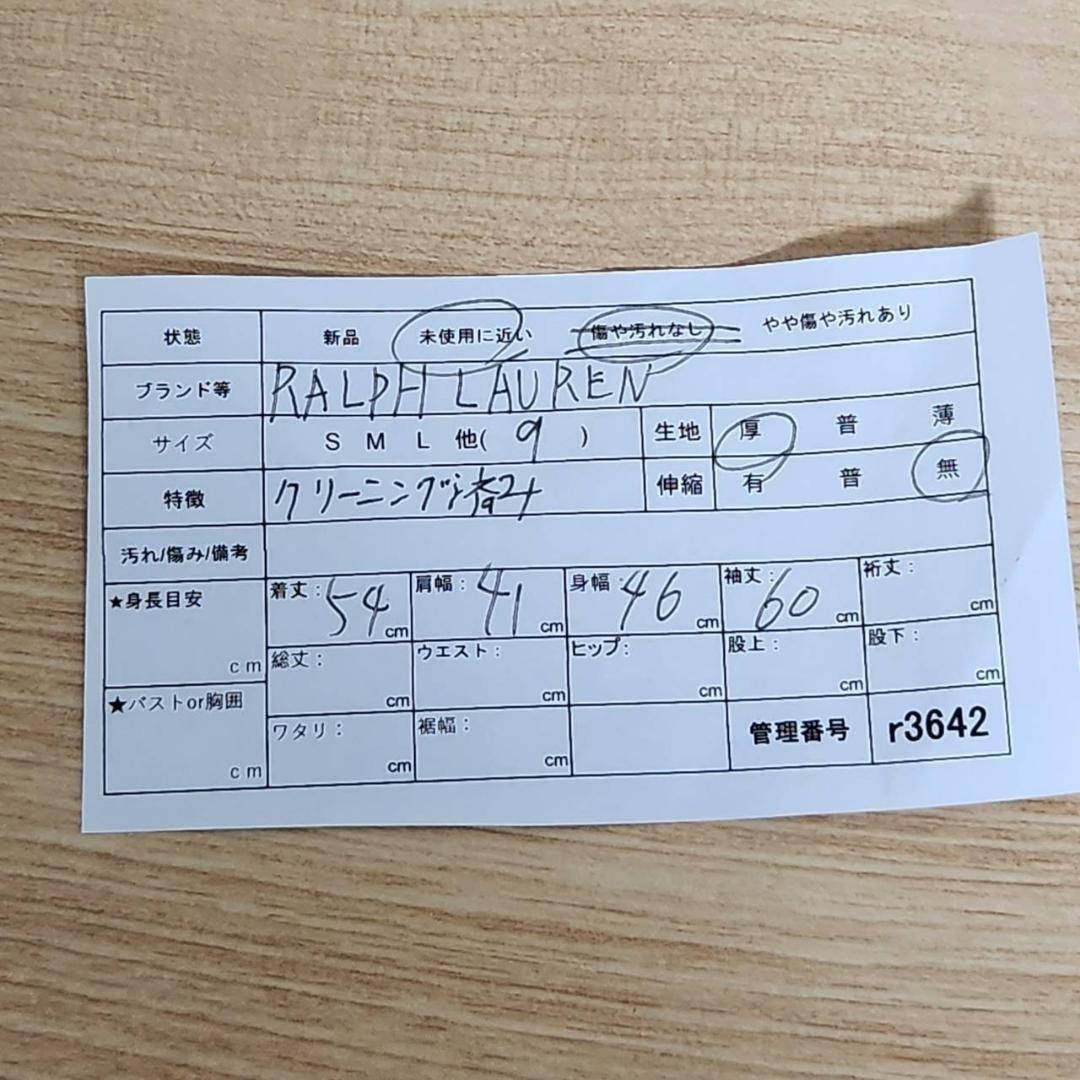 状態 新品 未使用に近い 傷や汚れなし やや傷や汚れあり
ブランド等 RALPH LAUREN
サイズ S M L 他( 9 ) 生地 厚 普 薄
特徴 クリーニング済み 伸縮 有 普 無
汚れ/傷み/備考
★身長目安 cm
着丈: 54 cm 肩幅: 41 cm 身幅: 46 cm 袖丈: 60 cm 裄丈: cm
総丈: cm ウエスト: cm ヒップ: cm 股上: cm 股下: cm
★バストor胸囲 cm
ワタリ: cm 裾幅: cm 管理番号 r3642